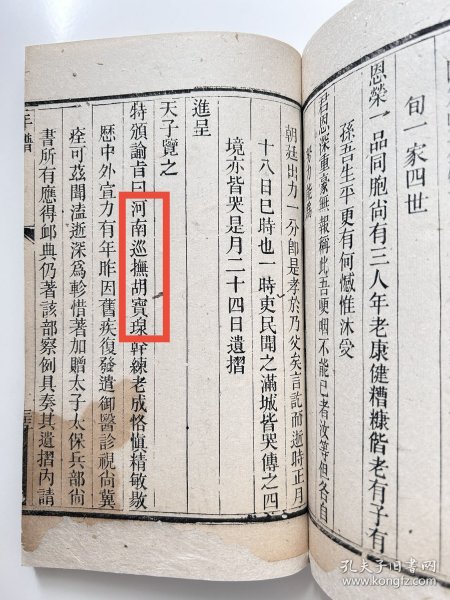 旬一家四世
恩榮一品同胞尚有三人年老康健糟糠偕老有子有
孫吾生平更有何憾惟沐受
君恩深重毫無報稱此吾哽咽不能已者汝等但各自
努力能為
朝廷出力一分即是孝於乃父矣言訖而逝時正月
十八日巳時也一時吏民聞之滿城皆哭傳之四
境亦皆哭是月二十四日遺摺
進呈
天子覽之
特頒諭旨曰河南巡撫胡寶瑔幹練老成恪慎精敏敭
歷中外宣力有年昨因舊疾復發遣御醫診視尚冀
痊可茲聞溘逝深為軫惜著加贈太子太保兵部尚
書所有應得卹典仍著該部察例具奏其遺摺內請
年譜
孔夫子旧书网
www.kongfz.com